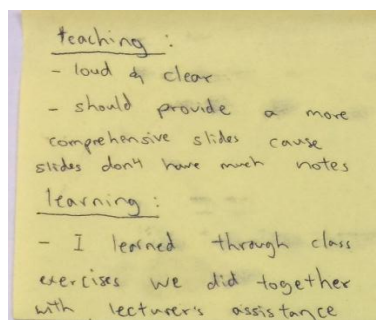 teaching :
- loud & clear
- should provide a more
comprehensive slides cause
slides don't have much notes
learning :
- I learned through class
exercises we did together
with lecturer's assistance